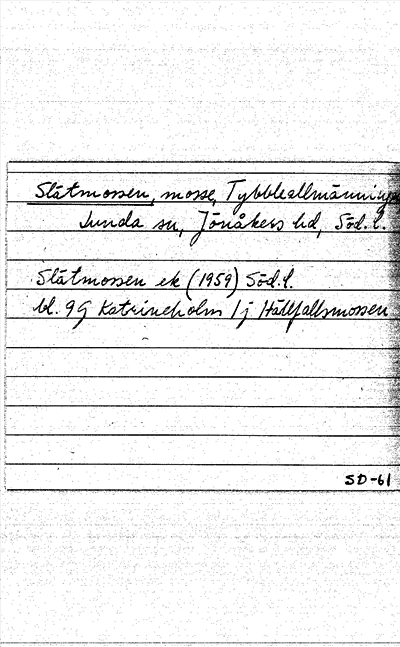 Slätmossen, mosse, Tybbleallmänningen
Lunda sn, Jönåkers hd, Söd.l.
Slätmossen ek (1959) Söd.l.
bl. 9G Katrineholm 1j Hällfallsmossen
SD-61